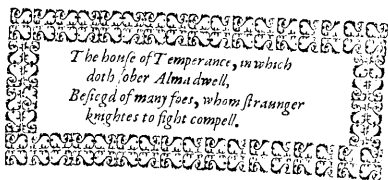 The houſe of Temperance, in which
doth ſober Alma dwell,
Beſiegd of many foes, whom ſtraunger
knightes to flight compell.